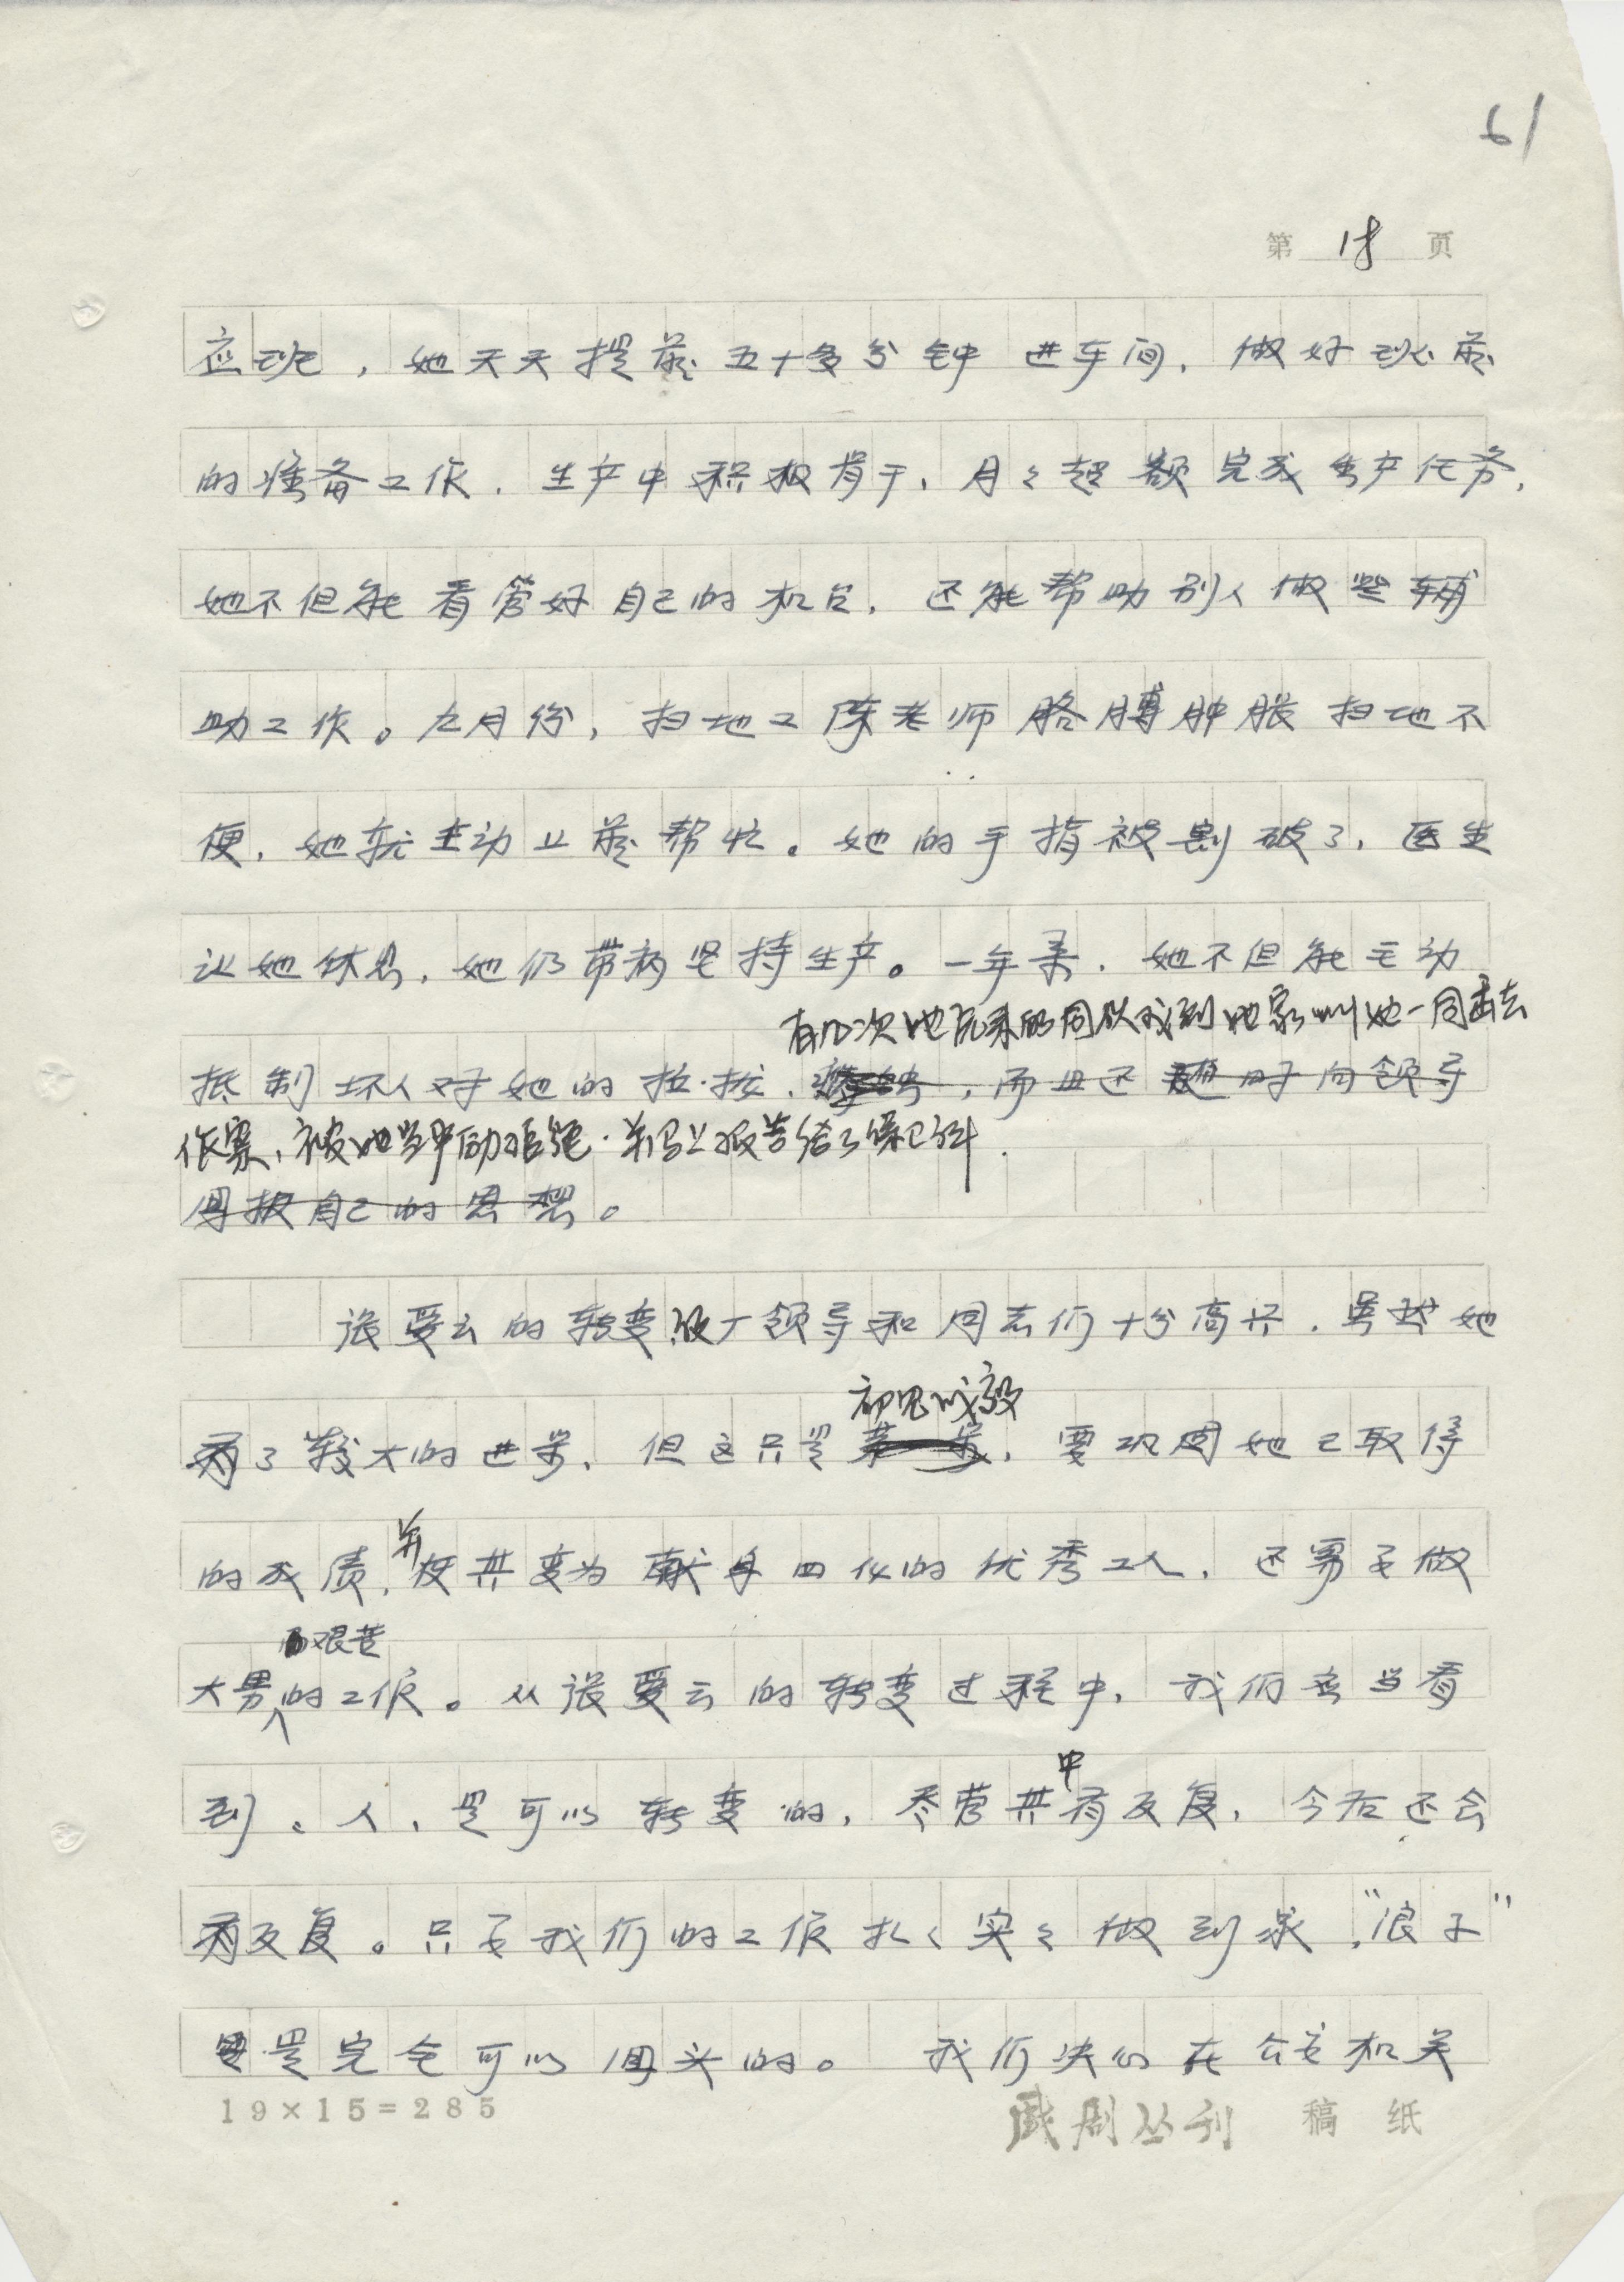 61
第 18 页
应班，她天天提前五十多分钟进车间，做好班前
的准备工作．生产中积极肯干，月々超额完成生产任务，
她不但能看管好自己的机台，还能帮助别人做些辅
助工作。九月份，扫地工陈老师胳膊肿胀扫地不
便，她就主动上前帮忙。她的手指被割破了，医生
让她休息，她仍带病坚持生产。一年来，她不但能主动
有几次她原来的同伙找到她家叫她一同出去
抵制坏人对她的拉拢，，而且还随时向领导
作案，被她当即劝拒绝．并马上报告给了保卫科．
自己的思想。
张爱云的转变使厂领导和同志们十分高兴．虽然她
初见成效
有了较大的进步，但这只是第一步，要巩固她已取得
并
的成绩，使其变为献身四化的优秀工人，还需要做
而艰苦
大量的工作。从张爱云的转变过程中，我们应当看
中
到。人，是可以转变的，尽管其有反复，今后还会
有反复。只要我们的工作扎々实々做到家，“浪子”
是完全可以回头的。 我们决心在公安机关
19×15=285
戏剧丛刊 稿 纸